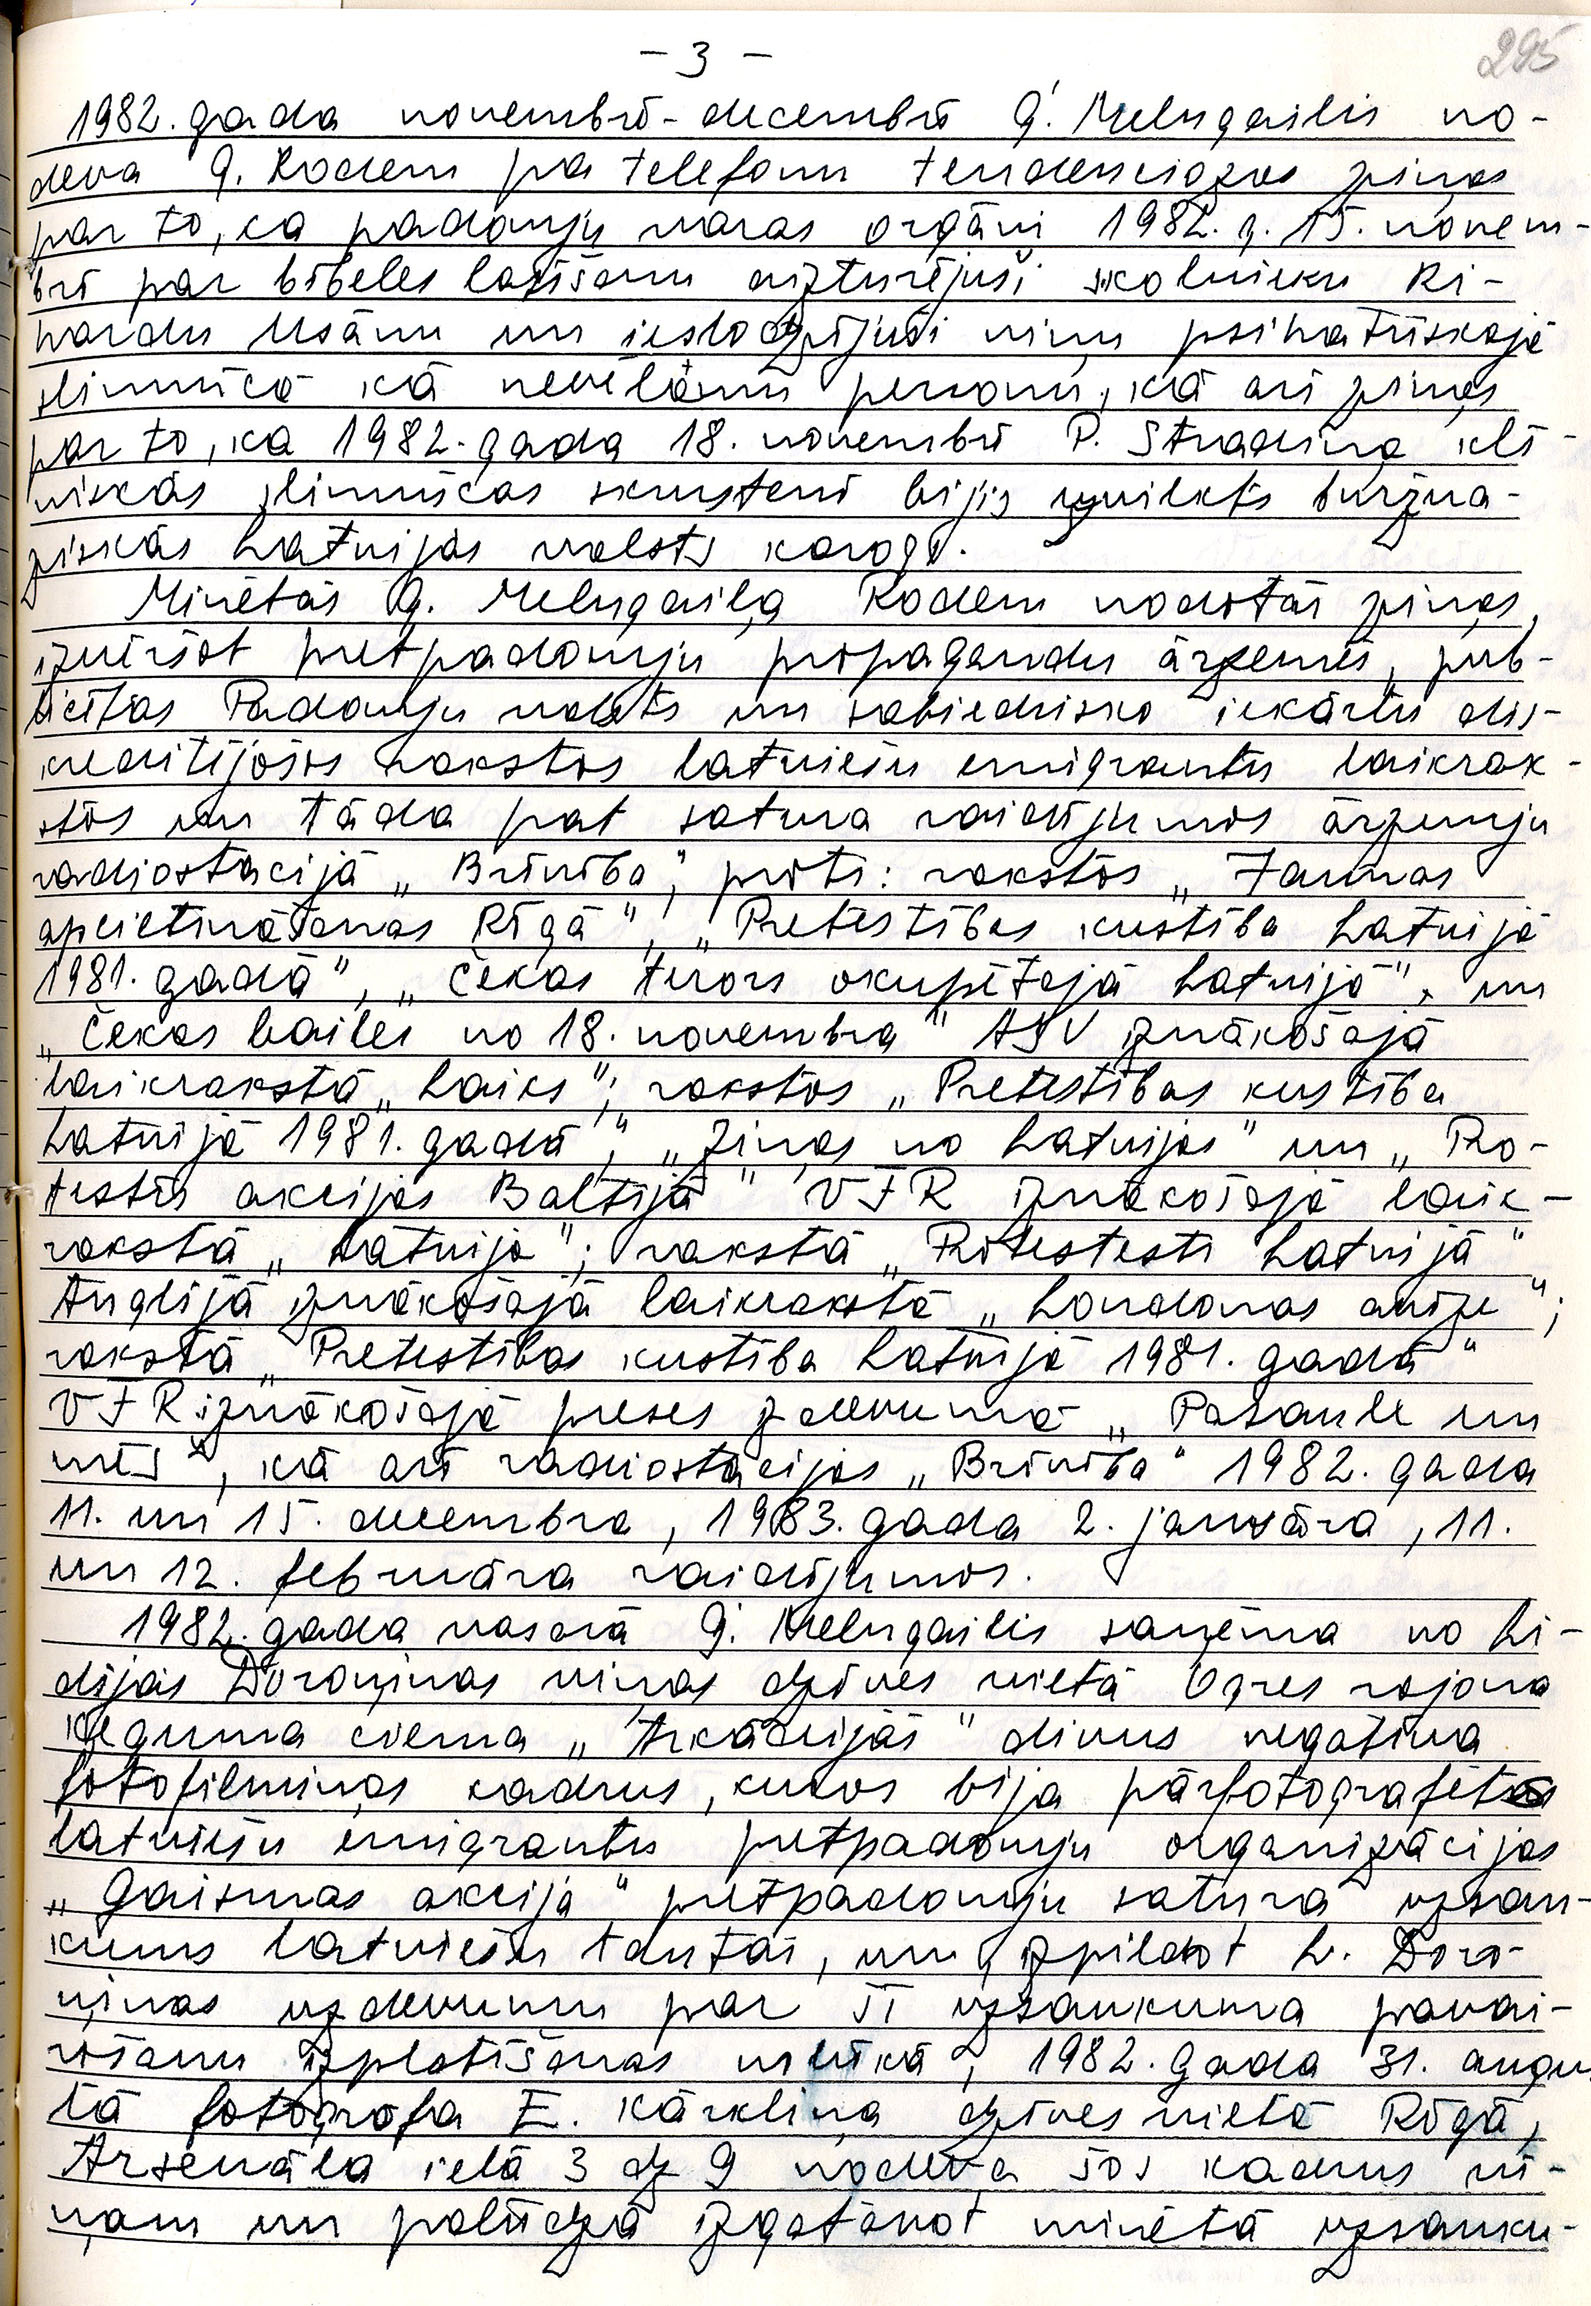 - 3 -
295
1982. gada novembrī - decembrī G. Melngailis no-
deva G. Rodem pa telefonu tendenciozas ziņas
par to, ka padomju varas orgāni 1982. g. 15. novem-
brī par bībeles lasīšanu aizturējuši skolnieku Ri-
hardu Usānu un ieslodzījuši viņu psihatriskajā
slimnīcā kā nevēlamu personu, kā arī ziņas
par to, ka 1982. gada 18. novembrī P. Stradiņa klī-
niskās slimnīcas skurstenī bijis uzvilkts buržuā-
ziskās Latvijas valsts karogs.
Minētās G. Melngaiļa Rodem nodotās ziņas,
izvēršot pretpadomju propagandu ārzemēs, pub-
licētas Padomju valsts un sabiedrisko iekārtu dis-
kreditējošos rakstos latviešu emigrantu laikrak-
stos un tāda pat satura raidījumos ārzemju
radiostacijā „Brīvība", proti: rakstos „Jaunas
apcietināšanas Rīgā", „Pretestības kustība Latvijā
1981. gadā", „Čekas terors okupētajā Latvijā", un
„Čekas bailes no 18. novembra" ASV iznākošajā
laikrakstā „Laiks"; rakstos „Pretestības kustība
Latvijā 1981. gadā", „Ziņas no Latvijas" un „Pro-
testa akcijas Baltijā" VFR iznākošajā laik-
rakstā „Latvija"; rakstā „Protestesti Latvijā"
Anglijā iznākošajā laikrakstā „Londonas avīze";
rakstā „Pretestības kustība Latvijā 1981. gadā"
VFR iznākošajā preses izdevumā „Pasaule un
mēs", kā arī radiostacijas „Brīvība" 1982. gada
11. un 15. decembra, 1983. gada 2. janvāra, 11.
un 12. februāra raidījumos.
1982. gada vasarā G. Melngailis saņēma no Li-
dijas Doroņinas viņas dzīves vietā Ogres rajona
Ķeguma ciema „Arkādijās" divus negatīva
fotofilmiņas kadrus, kuros bija pārfotografēts
latviešu emigrantu pretpadomju organizācijas
„Gaismas akcija" pretpadomju satura uzsau-
kums latviešu tautai, un, izpildot L. Doro-
ņinas uzdevumu par šī uzsaukuma pavai-
rošanu izplatīšanas nolūkā, 1982. gada 31. augus
tā fotogrāfa E. Kārkliņa dzīves vietā Rīgā,
Arsenāla ielā 3 dz 9 nodeva šos kadrus vi-
ņam un palīdzēja izgatavot minētā uzsauku-